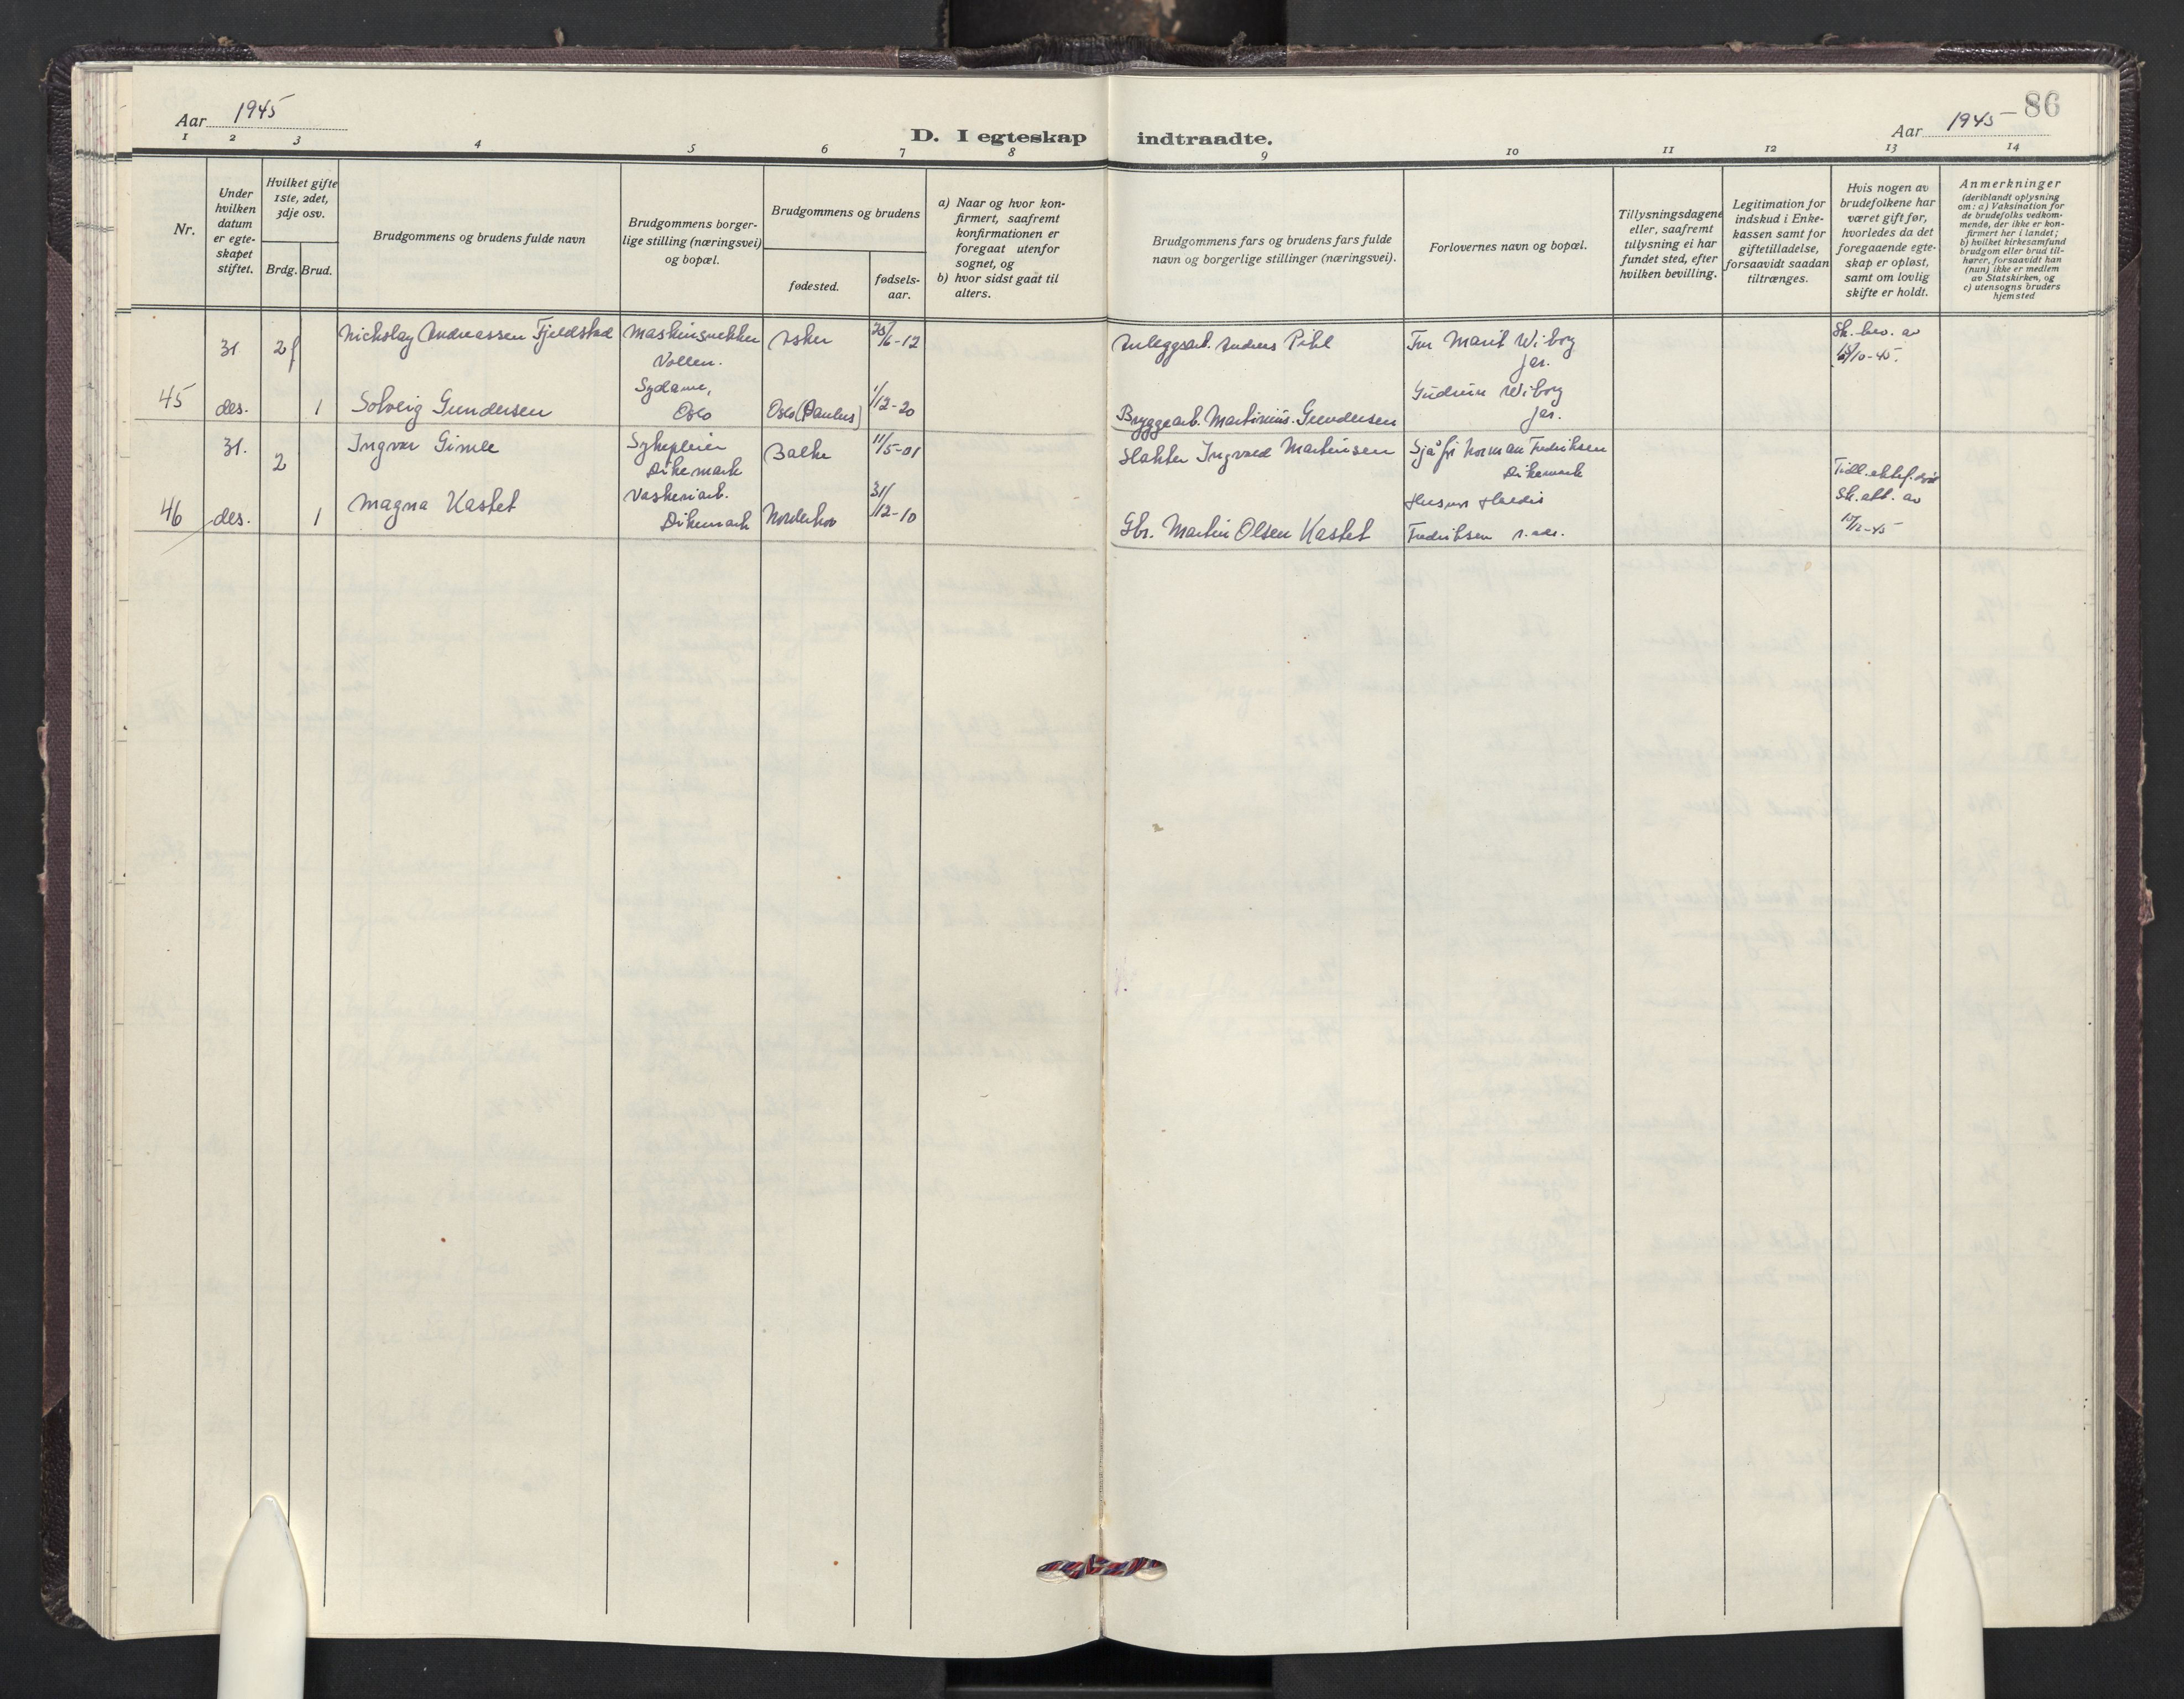 Aar 1945
D. I egteskap indtraadte.
Aar 1945
86
1 2 3 4 5 6 7 8 9 10 11 12 13 14
Nr.
Under
hvilken
datum
er egte-
skapet
stiftet.
Hvilket gifte
1ste, 2det,
3dje osv.
Brdg. Brud.
Brudgommens og brudens fulde navn
Brudgommens borger-
lige stilling (næringsvei)
og bopæl.
Brudgommens og brudens
fødested.
fødsels-
aar.
a) Naar og hvor kon-
firmert, saafremt
konfirmationen er
foregaat utenfor
sognet, og
b) hvor sidst gaat til
alters.
Brudgommens fars og brudens fars fulde
navn og borgerlige stillinger (næringsvei).
Forlovernes navn og bopæl.
Tillysningsdagene
eller, saafremt
tillysning ei har
fundet sted, efter
hvilken bevilling.
Legitimation for
indskud i Enke-
kassen samt for
giftetilladelse,
forsaavidt saadan
tiltrænges.
Hvis nogen av
brudefolkene har
været gift før,
hvorledes da det
foregaaende egte-
skap er opløst,
samt om lovlig
skifte er holdt.
Anmerkninger
(deriblandt oplysning
om: a) Vaksination for
de brudefolks vedkom-
mende, der ikke er kon-
firmert her i landet;
b) hvilket kirkesamfund
brudgom eller brud til-
hører, forsaavidt han
(hun) ikke er medlem
av Statskirken, og
c) utensogns bruders
hjemsted
45
31
des.
2f
1
Nickolay Andreassen Fjeldstad
Solveig Gundersen
Maskinsnekker
Vollen.
Sydame,
Oslo
Asker
Oslo (Paulus)
25/6-12
1/12-20
Anleggsarb. Anders Pihl
Bryggearb. Martinius Gundersen
Fru Marit Wiborg
Jar.
Gudrun Wiborg
Jar.
Sk. bev. av
/10-45.
46
31.
des.
2
1
Ingvar Gimle
Magna Kastet
Sykepleier
Dikemark
Vaskeriarb.
Dikemark
Balke
Norderhov
11/5-01
31/12-10
Slakter Ingvald Martinsen
Gbr. Martin Olsen Kastet
Sjåfør Norman Fredriksen
Dikemark
Husmor Haldis
Fredriksen s. adr.
Tidl. ektef. død
Sk. att. av
/12-45